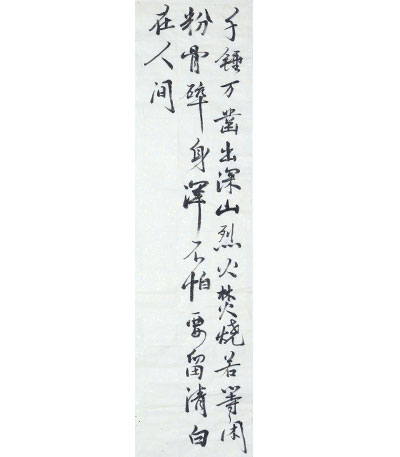 千锤万凿出深山烈火焚烧若等闲
粉骨碎身浑不怕要留清白
在人间